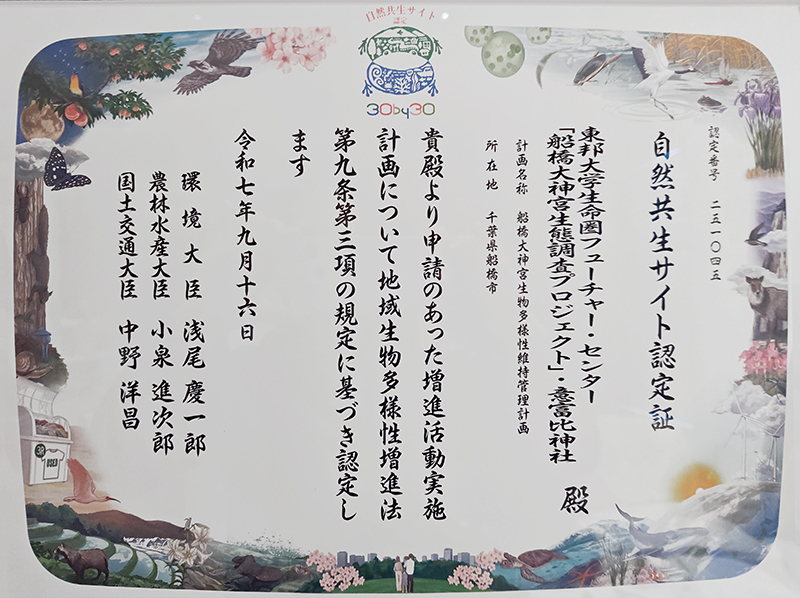 自然共生サイト
認定
30by30
認定番号 二五一〇四五
自然共生サイト認定証
東邦大学生命圏フューチャー・センター
「船橋大神宮生態調査プロジェクト」・意富比神社 殿
計画名称 船橋大神宮生物多様性維持管理計画
所在地 千葉県船橋市
貴殿より申請のあった増進活動実施
計画について地域生物多様性増進法
第九条第三項の規定に基づき認定し
ます
令和七年九月十六日
環境大臣 浅尾慶一郎
農林水産大臣 小泉進次郎
国土交通大臣 中野洋昌
USED
30